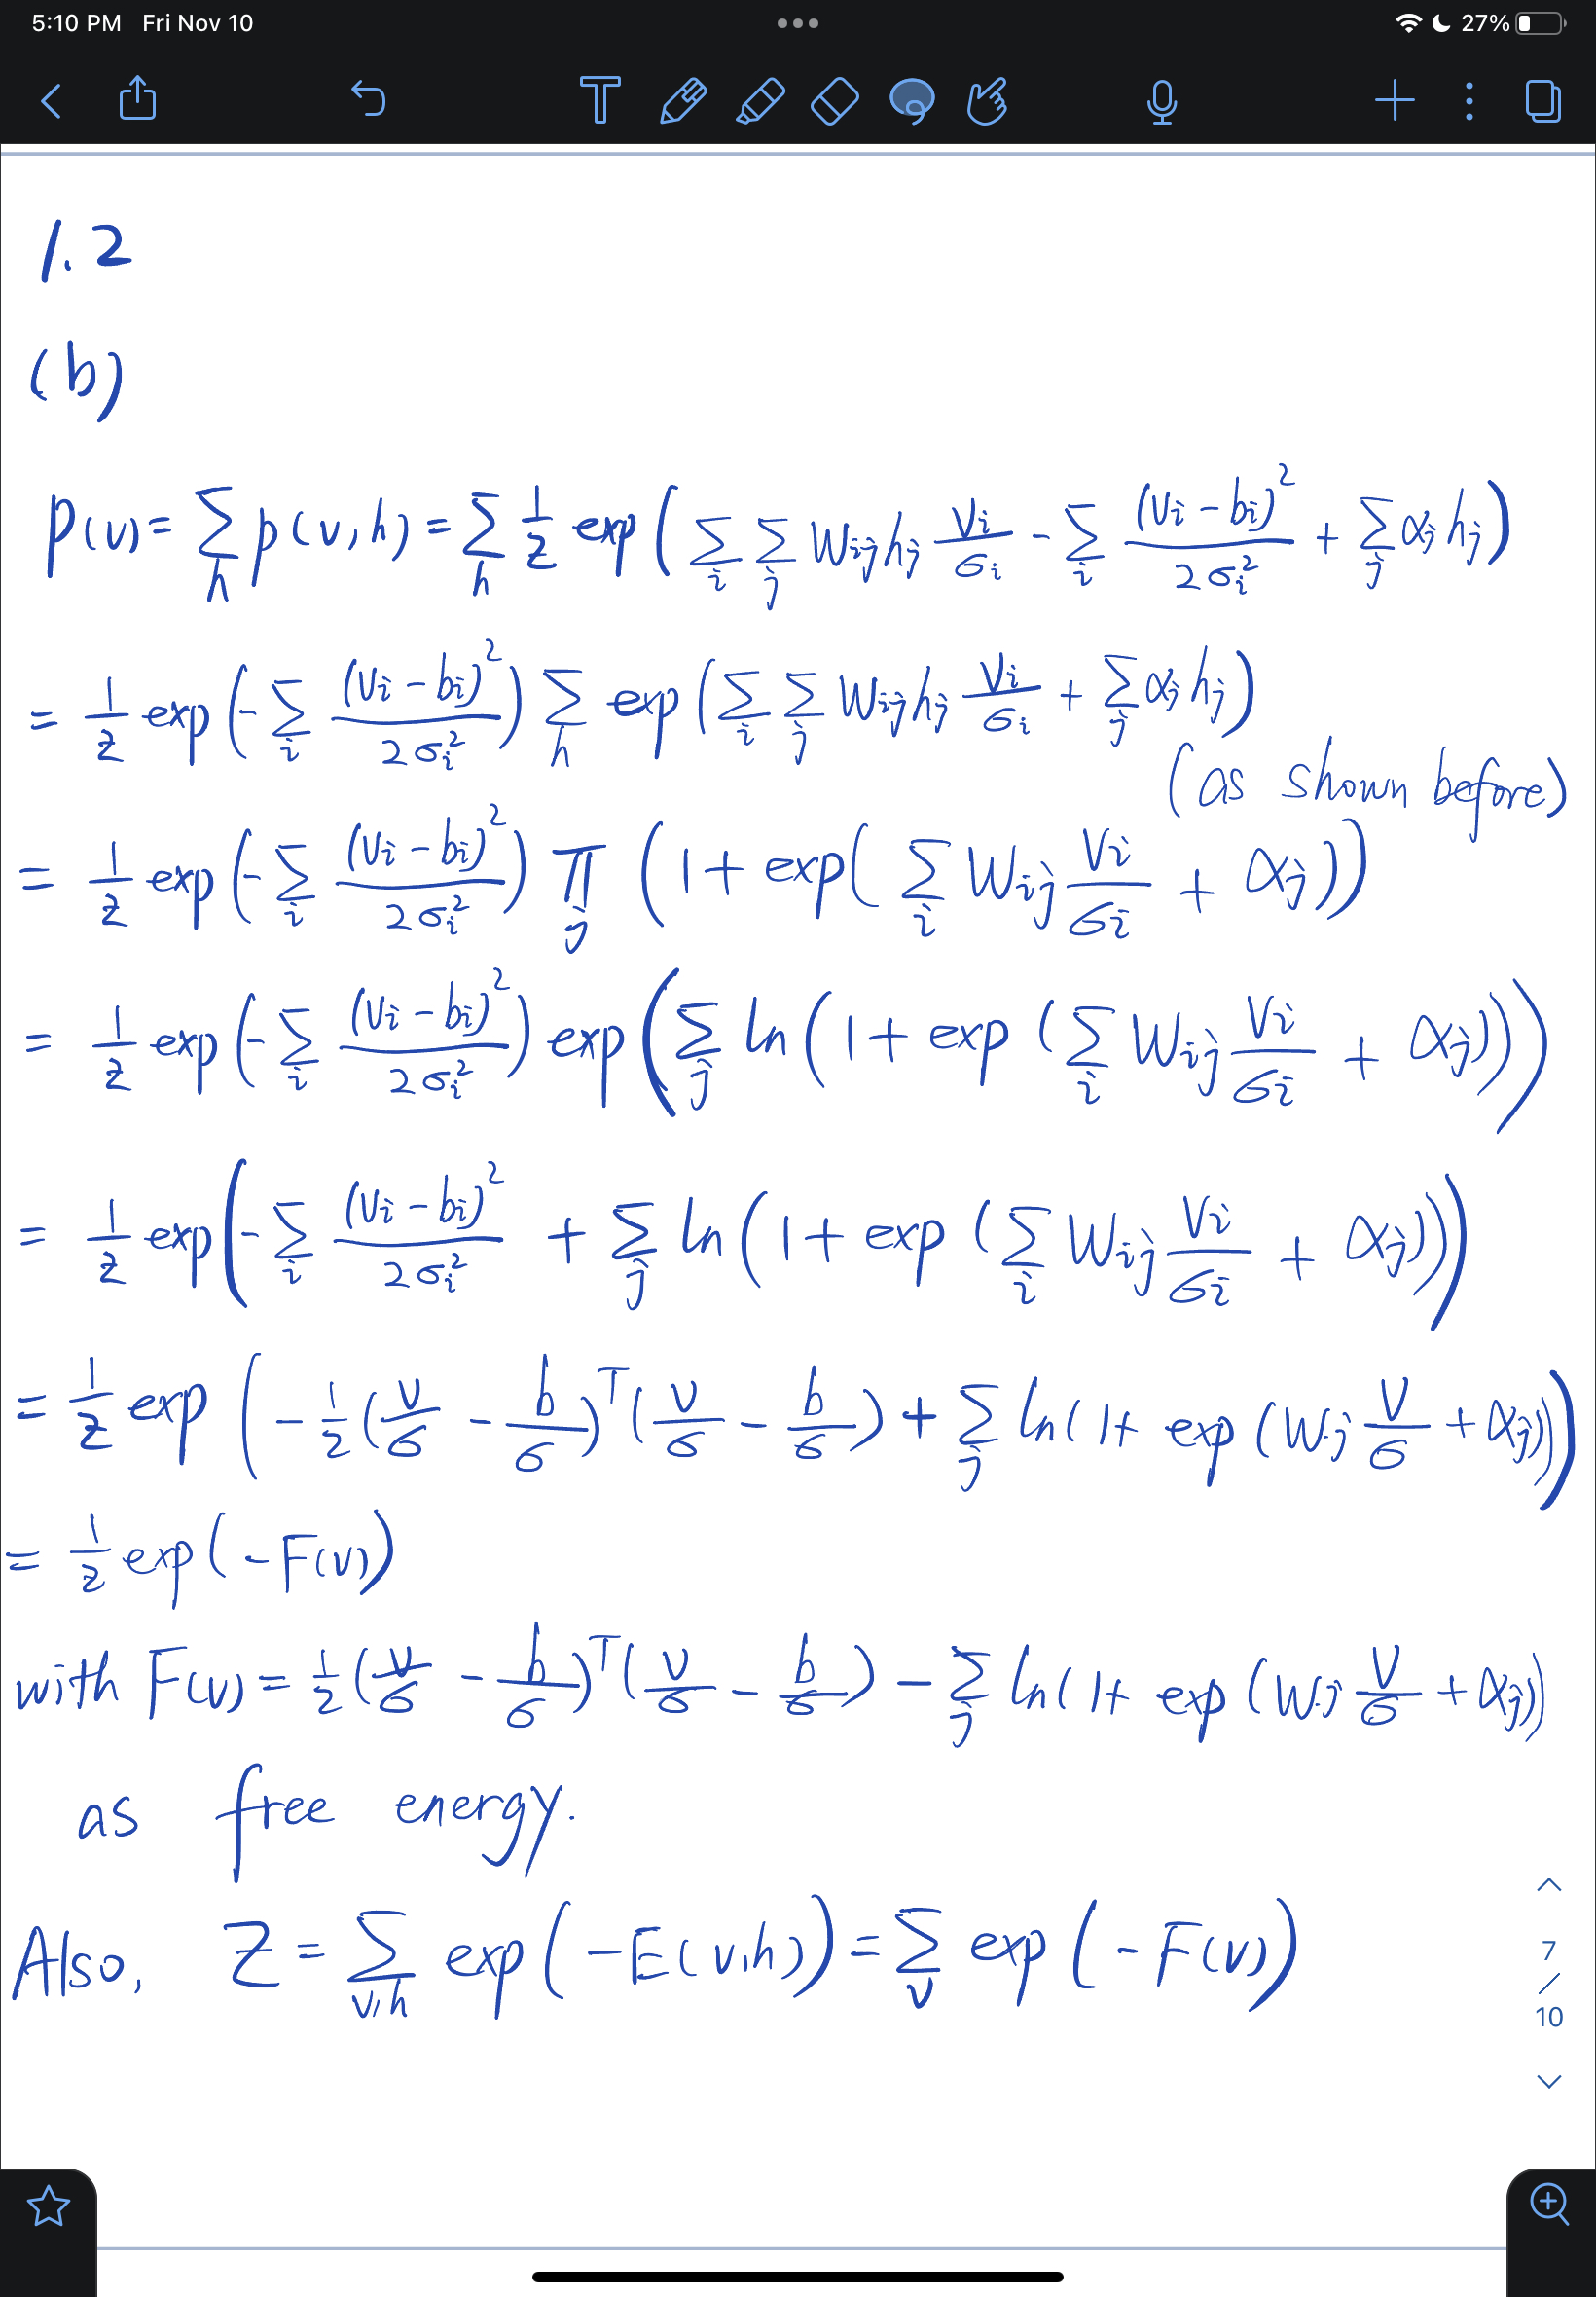 5:10 PM Fri Nov 10 27%
T
1.2
(b)
p(v) = Σ_h p(v,h) = Σ_h 1/Z exp( Σ_i Σ_j W_ij h_j v_i/σ_i - Σ_i (v_i - b_i)²/2σ_i² + Σ_j α_j h_j )
= 1/Z exp( -Σ_i (v_i - b_i)²/2σ_i² ) Σ_h exp( Σ_i Σ_j W_ij h_j v_i/σ_i + Σ_j α_j h_j )
(as shown before)
= 1/Z exp( -Σ_i (v_i - b_i)²/2σ_i² ) Π_j ( 1 + exp( Σ_i W_ij v_i/σ_i + α_j ))
= 1/Z exp( -Σ_i (v_i - b_i)²/2σ_i² ) exp( Σ_j ln( 1 + exp( Σ_i W_ij v_i/σ_i + α_j )))
= 1/Z exp( -Σ_i (v_i - b_i)²/2σ_i² + Σ_j ln( 1 + exp( Σ_i W_ij v_i/σ_i + α_j )))
= 1/Z exp( -1/2 ( v/σ - b/σ )^T ( v/σ - b/σ ) + Σ_j ln( 1 + exp( W_·j v/σ + α_j )))
= 1/Z exp( -F(v) )
with F(v) = 1/2 ( v/σ - b/σ )^T ( v/σ - b/σ ) - Σ_j ln( 1 + exp( W_·j v/σ + α_j ))
as free energy.
Also, Z = Σ_v,h exp( -E(v,h) ) = Σ_v exp( -F(v) )
7
/
10